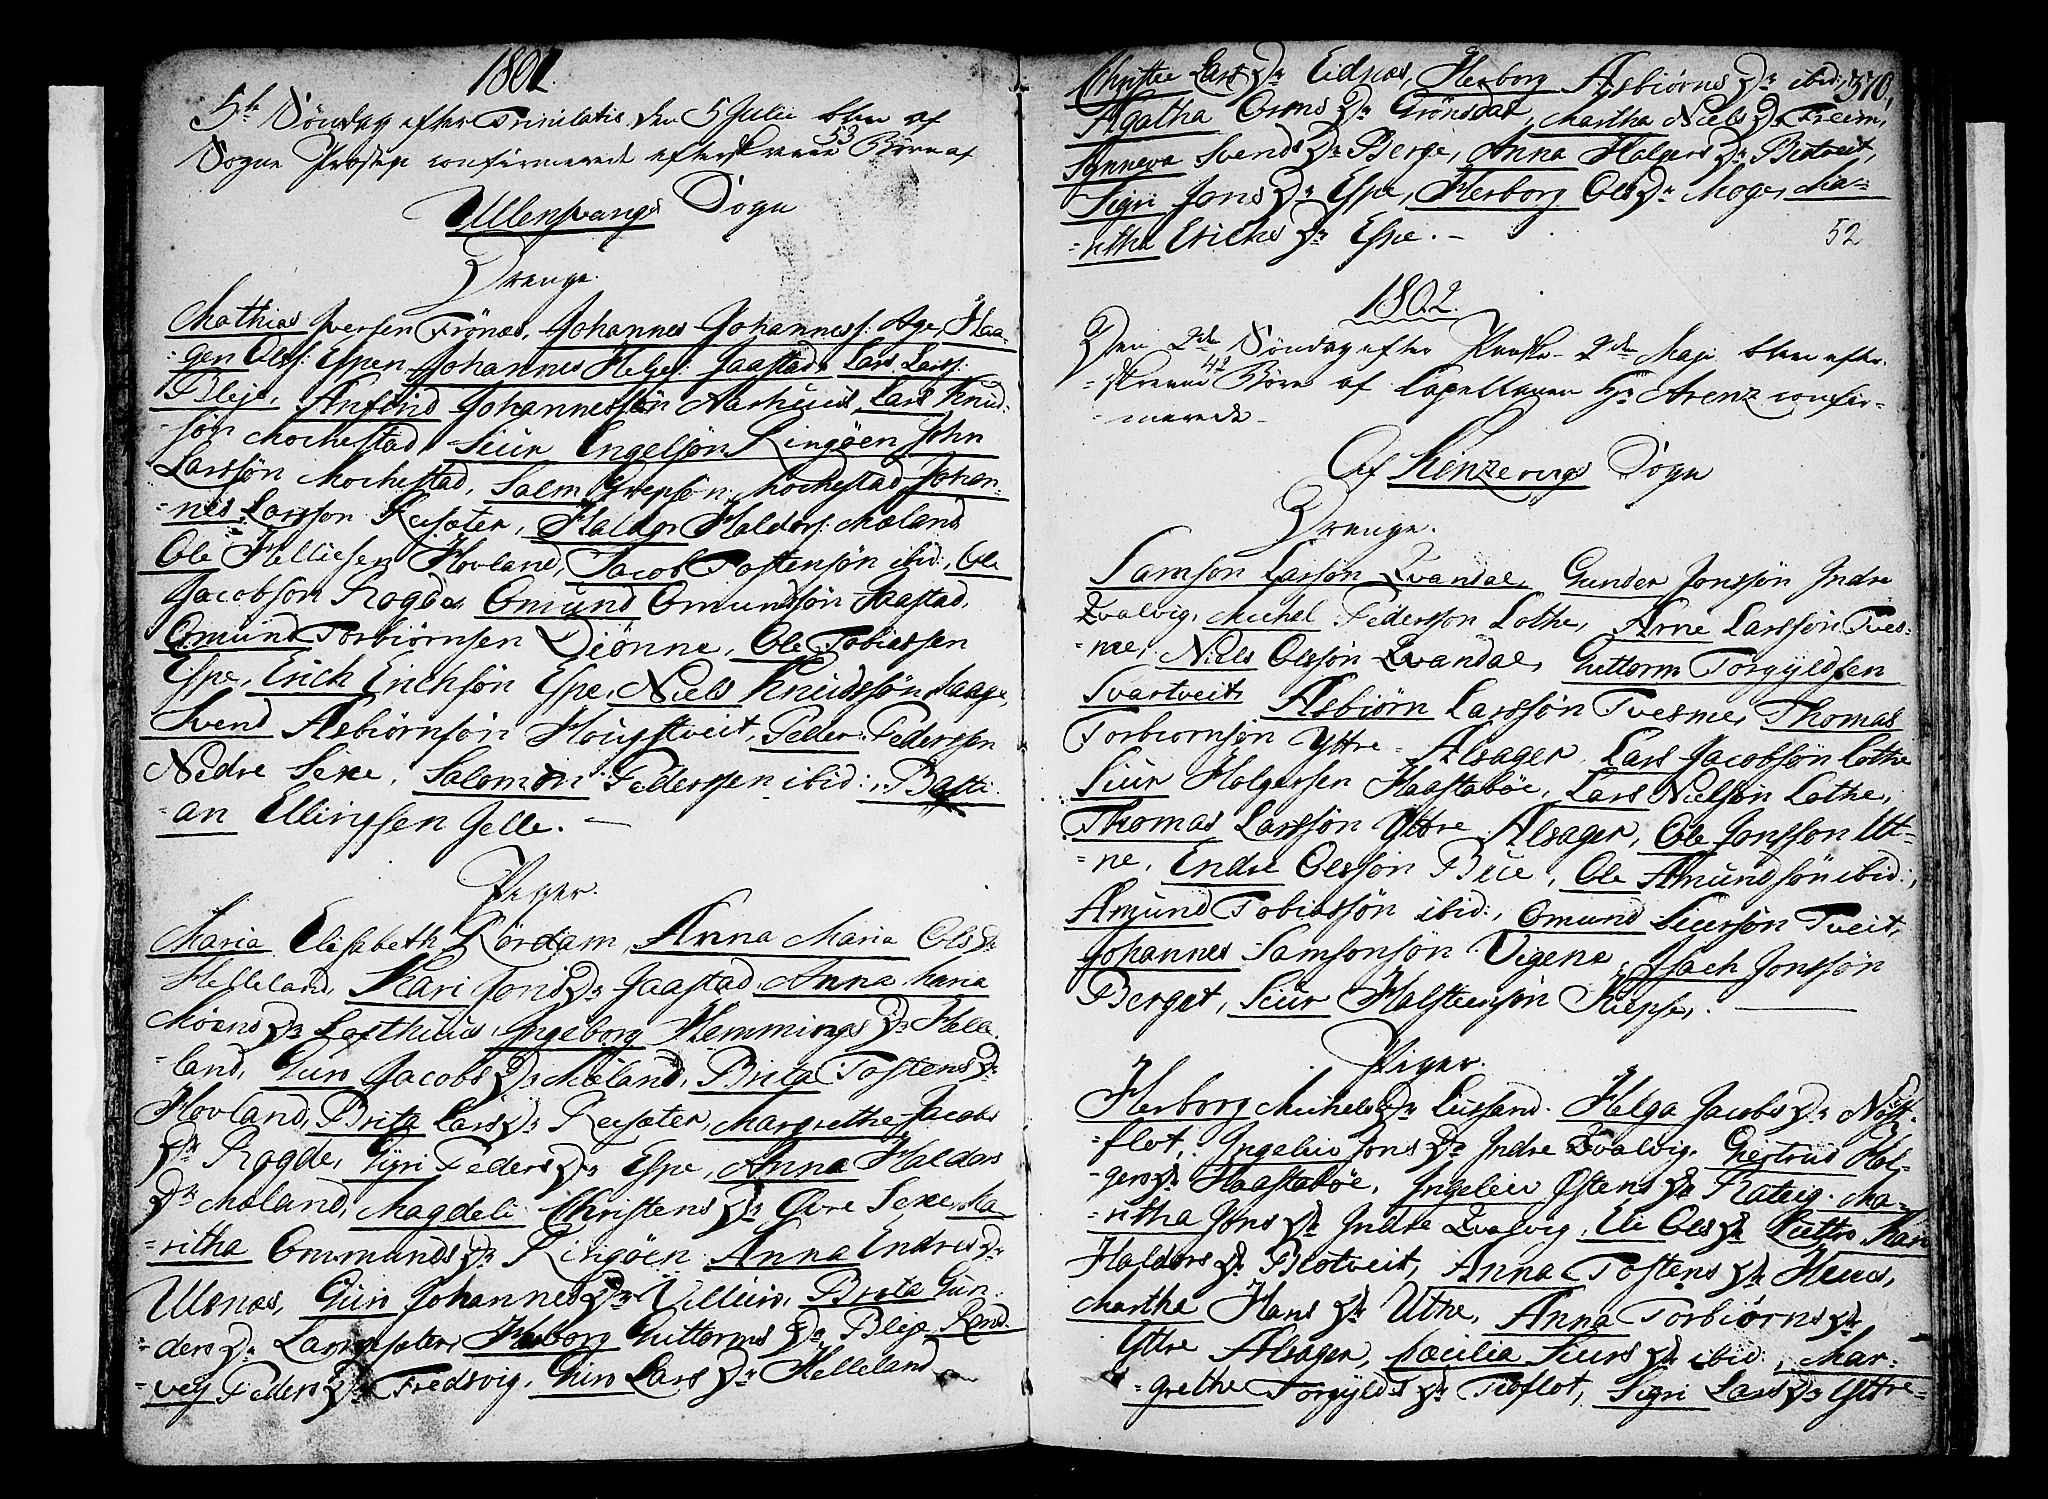 1801.
5te Søndag efter Trinitatis den 5 Julii blev af
Sogne Præsten confirmerede efterskrevne 53 Børn af
Ullensvangs Sogn
Drenge.
Mathias Iversen Frönæs, Johannes Johanness: Age, Haa-
=gen Olss: Espen, Johannes Helges: Jaastad, Lars Larss:
Bleje, Anfind Johannessøn Aarhuus, Lars Knud-
=søn Mochestad, Siur Engelsøn Ringöen, John
Larssøn Mochestad, Salm Grepsøn Mochestad, Johan-
=nes Larsson Reisæter, Haldor Haldors: Mæland
Ole Helliesen Hovland, Jacob Tostensøn ibid:, Ole
Jacobson Rogde, Omund Omundsøn Jaastad,
Omund Torbiörnsen Diönne, Ole Tobiassen
Espe, Erich Erichsön Espe, Niels Knudssøn Haage,
Svend Asbiörnsön Hougstveit, Peder Pedersen
Nedre Sexe, Salomon Pederssen ibid:, Basti-
=an Ellingsen Jelle. —
Piger.
Maria Elisabeth Rördam, Anna Maria Ols Dr
Helleland, Kari Jons Dr Jaastad, Anna Maria
Moens Dr Lofthuus, Ingeborg Hemmings Dr Helle
=land, Guri Jacobs Dr Mæland, Brita Tostens Dr
Hovland, Brita Lars Dr Reisæter, Margrethe Jacobs
Dr Rogde, Gyri Peders Dr Espe, Anna Haldors
Dr Mæland, Magdeli Christens Dr Övre Sexe, Ma
=ritha Ommunds Dr Ringöen, Anna Endres Dr
Ulenæs, Guri Johannes Dr Villure, Brita Gun-
=ders Dr Lannesæter, Herborg Guttorms Dr Bleje, Rand-
=vey Peders Dr Fredsvig, Guri Lars Dr Helleland
Christie Lars Dr Eidnæs, Herborg Asbiörns Dr ibid:, 370,
Agatha Orms Dr Grönsdal, Martha Niels Dr Freim,
Synneva Svends Dr Berge, Anna Holgers Dr Bistveit,
Sigri Jons Dr Espe, Herborg Ols Dr Moge, Ma-
=ritha Erichs Dr Espe. —
52
1802.
Den 2den Søndag efter Paaske 2den Maji blev efter-
=skrevne 42 Børn af Capellanen Hr Arenz confir-
=merede
Af Kinzervigs Sogn
Drenge.
Samson Larsøn Qvandal, Gunder Jonssøn Indre
Qvalvig, Michel Pedersson Lothe, Arne Larssøn Tves-
=me, Niels Olssøn Qvandal, Guttorm Torgyldsen
Svartveit, Asbiørn Larssøn Tvesme, Thomas
Torbiornsøn Yttre Alsager, Lars Jacobsøn Lothe
Siur Holgersen Haastaböe, Lars Nielsøn Lothe,
Thomas Larssøn Yttre Alsager, Ole Jonsson Ut-
=ne, Endre Olssøn Bue, Ole Amundsøn ibid:,
Amund Tobiassøn ibid:, Omund Siursøn Tveit,
Johannes Samsonsøn Vigene, Isach Jonssøn
Berget, Siur Holsteensøn Skieppe, . —
Piger.
Herborg Michels Dr Lussand. Helga Jacobs Dr Nöst-
=flot, Ingelev Jons Dr Indre Qvalvig, Giertrud Hol-
=gers Dr Haastaböe, Ingelev Ostens Dr Ratvig. Ma-
=ritha Jons Dr Indre Qvalvig, Eli Ols Dr Kuttro, Kari
Haldors Dr Blotveit, Anna Tostens Dr Huus,
Martha Hans Dr Utne, Anna Torbiörns Dr
Yttre Alsager, Cæcilia Siurs Dr ibid:, Mar-
=grethe Torgylds Dr Tioflot, Sigri Lars Dr Yttre-